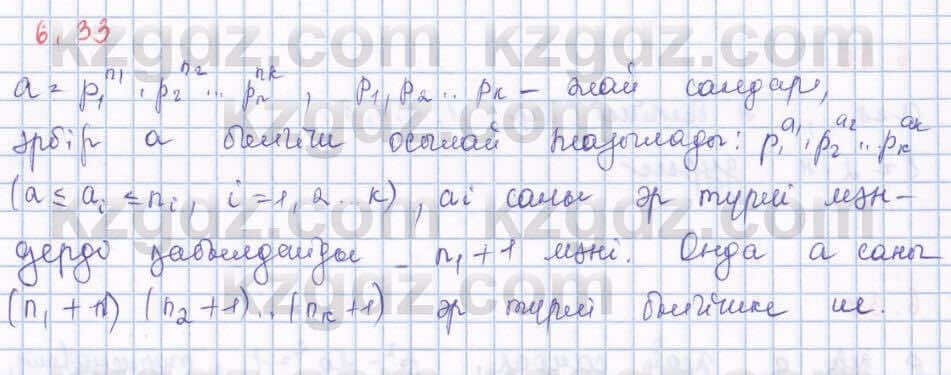 6.33
a = p₁^n₁ · p₂^n₂ ... pₙ^nk, p₁, p₂ .. pₖ – жай сандар,
әрбір a бөлгіш осылай жазылады: p₁^a₁, p₂^a₂ .. pₖ^aк
(a ≤ aᵢ ≤ nᵢ, i = 1, 2 .. к), ai саны әр түрлі мән-
дерді қабылдайды – n₁ + 1 мәні. Онда a саны
(n₁ + 1) (n₂ + 1) .. (nₖ + 1) әр түрлі бөлгішке ие.